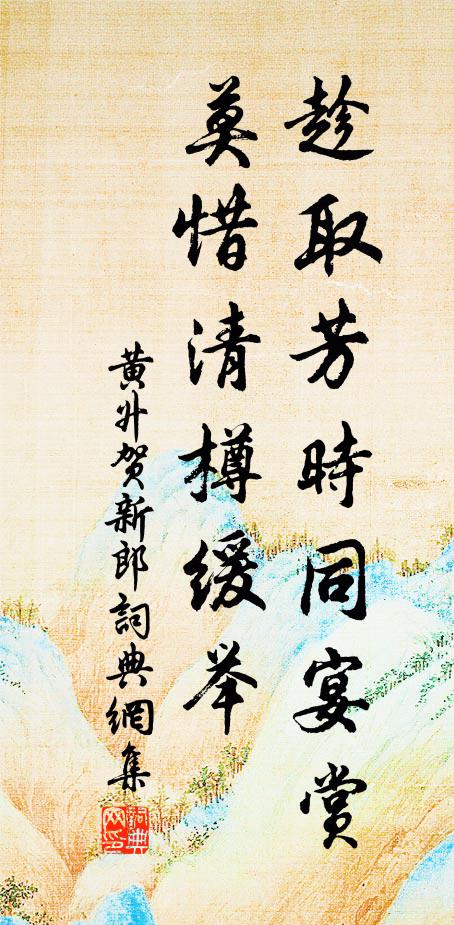 趁取芳時同宴賞
莫惜清樽緩举
黄升贺新郎詞典網集
詞典网印